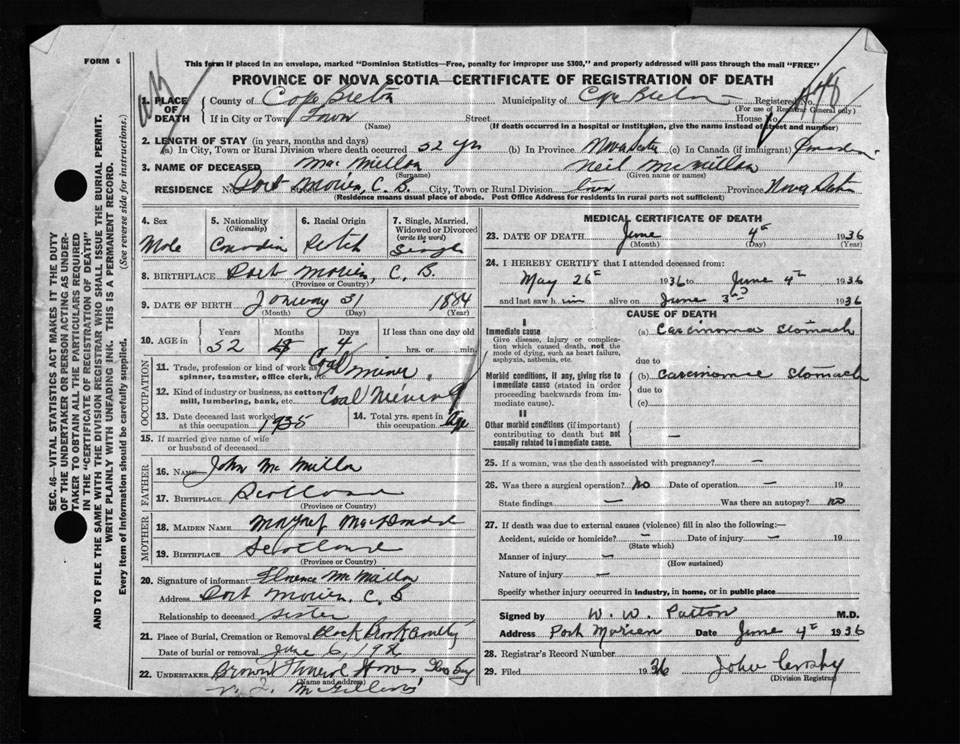 FORM 6
This form if placed in an envelope, marked "Dominion Statistics—Free, penalty for improper use $300," and properly addressed will pass through the mail "FREE"
PROVINCE OF NOVA SCOTIA—CERTIFICATE OF REGISTRATION OF DEATH
SEC. 46—VITAL STATISTICS ACT MAKES IT THE DUTY
OF THE UNDERTAKER OR PERSON ACTING AS UNDER-
TAKER TO OBTAIN ALL THE PARTICULARS REQUIRED
IN THE "CERTIFICATE OF REGISTRATION OF DEATH"
AND TO FILE THE SAME WITH THE DIVISION REGISTRAR WHO SHALL ISSUE THE BURIAL PERMIT.
WRITE PLAINLY WITH UNFADING INK. THIS IS A PERMANENT RECORD.
Every item of Information should be carefully supplied. (See reverse side for instructions.)
1. PLACE OF DEATH County of Cape Breton Municipality of Cape Breton Registered No.
(For use of Registrar General only)
If in City or Town Town Street House No.
(Name) (If death occurred in a hospital or institution, give the name instead of street and number)
2. LENGTH OF STAY (in years, months and days)
(a) In City, Town or Rural Division where death occurred 52 yrs (b) In Province Nova Scotia (c) In Canada (if immigrant)
3. NAME OF DECEASED Mac Millan Neil McMillan
(Surname) (Given name or names)
RESIDENCE No. Port Morien, C. B. City, Town or Rural Division Town Province Nova Scotia
(Residence means usual place of abode. Post Office Address for residents in rural parts not sufficient)
4. Sex Male
5. Nationality (Citizenship) Canadian
6. Racial Origin Scotch
7. Single, Married, Widowed or Divorced (write the word) Single
8. BIRTHPLACE Port Morien, C. B.
(Province or Country)
9. DATE OF BIRTH January 31 1884
(Month) (Day) (Year)
10. AGE in Years 52 Months Days 4 If less than one day old hrs. or min.
OCCUPATION
11. Trade, profession or kind of work as spinner, teamster, office clerk, etc. Coal Miner
12. Kind of industry or business, as cotton mill, lumbering, bank, etc. Coal Mining
13. Date deceased last worked at this occupation 1935
14. Total yrs. spent in this occupation
15. If married give name of wife or husband of deceased
FATHER
16. NAME John McMillan
17. BIRTHPLACE Scotland
(Province or Country)
MOTHER
18. MAIDEN NAME Margret MacDonald
19. BIRTHPLACE Scotland
(Province or Country)
20. Signature of informant Florence McMillan
Address Port Morien, C. B
Relationship to deceased sister
21. Place of Burial, Cremation or Removal Black Brook
Date of burial or removal June 6, 19
22. UNDERTAKER Brown Funeral Home
(Name and address)
MEDICAL CERTIFICATE OF DEATH
23. DATE OF DEATH June 4th 1936
(Month) (Day) (Year)
24. I HEREBY CERTIFY that I attended deceased from:
May 26th 1936 to June 4th 1936
and last saw him alive on June 3rd 1936
CAUSE OF DEATH
I
Immediate cause
Give disease, injury or complication which caused death, not the mode of dying, such as heart failure, asphyxia, asthenia, etc.
(a) Carcinoma stomach
due to
Morbid conditions, if any, giving rise to immediate cause (stated in order proceeding backwards from immediate cause).
(b) Carcinoma stomach
due to
(c)
II
Other morbid conditions (if important) contributing to death but not causally related to immediate cause. —
25. If a woman, was the death associated with pregnancy? —
26. Was there a surgical operation? no Date of operation — 19
State findings — Was there an autopsy? no
27. If death was due to external causes (violence) fill in also the following:—
Accident, suicide or homicide? — Date of injury — 19
(State which)
Manner of injury —
(How sustained)
Nature of injury —
Specify whether injury occurred in industry, in home, or in public place
Signed by W. W. Patton M.D.
Address Port Morien Date June 4th 1936
28. Registrar's Record Number
29. Filed 1936 John Crosby
(Division Registrar)